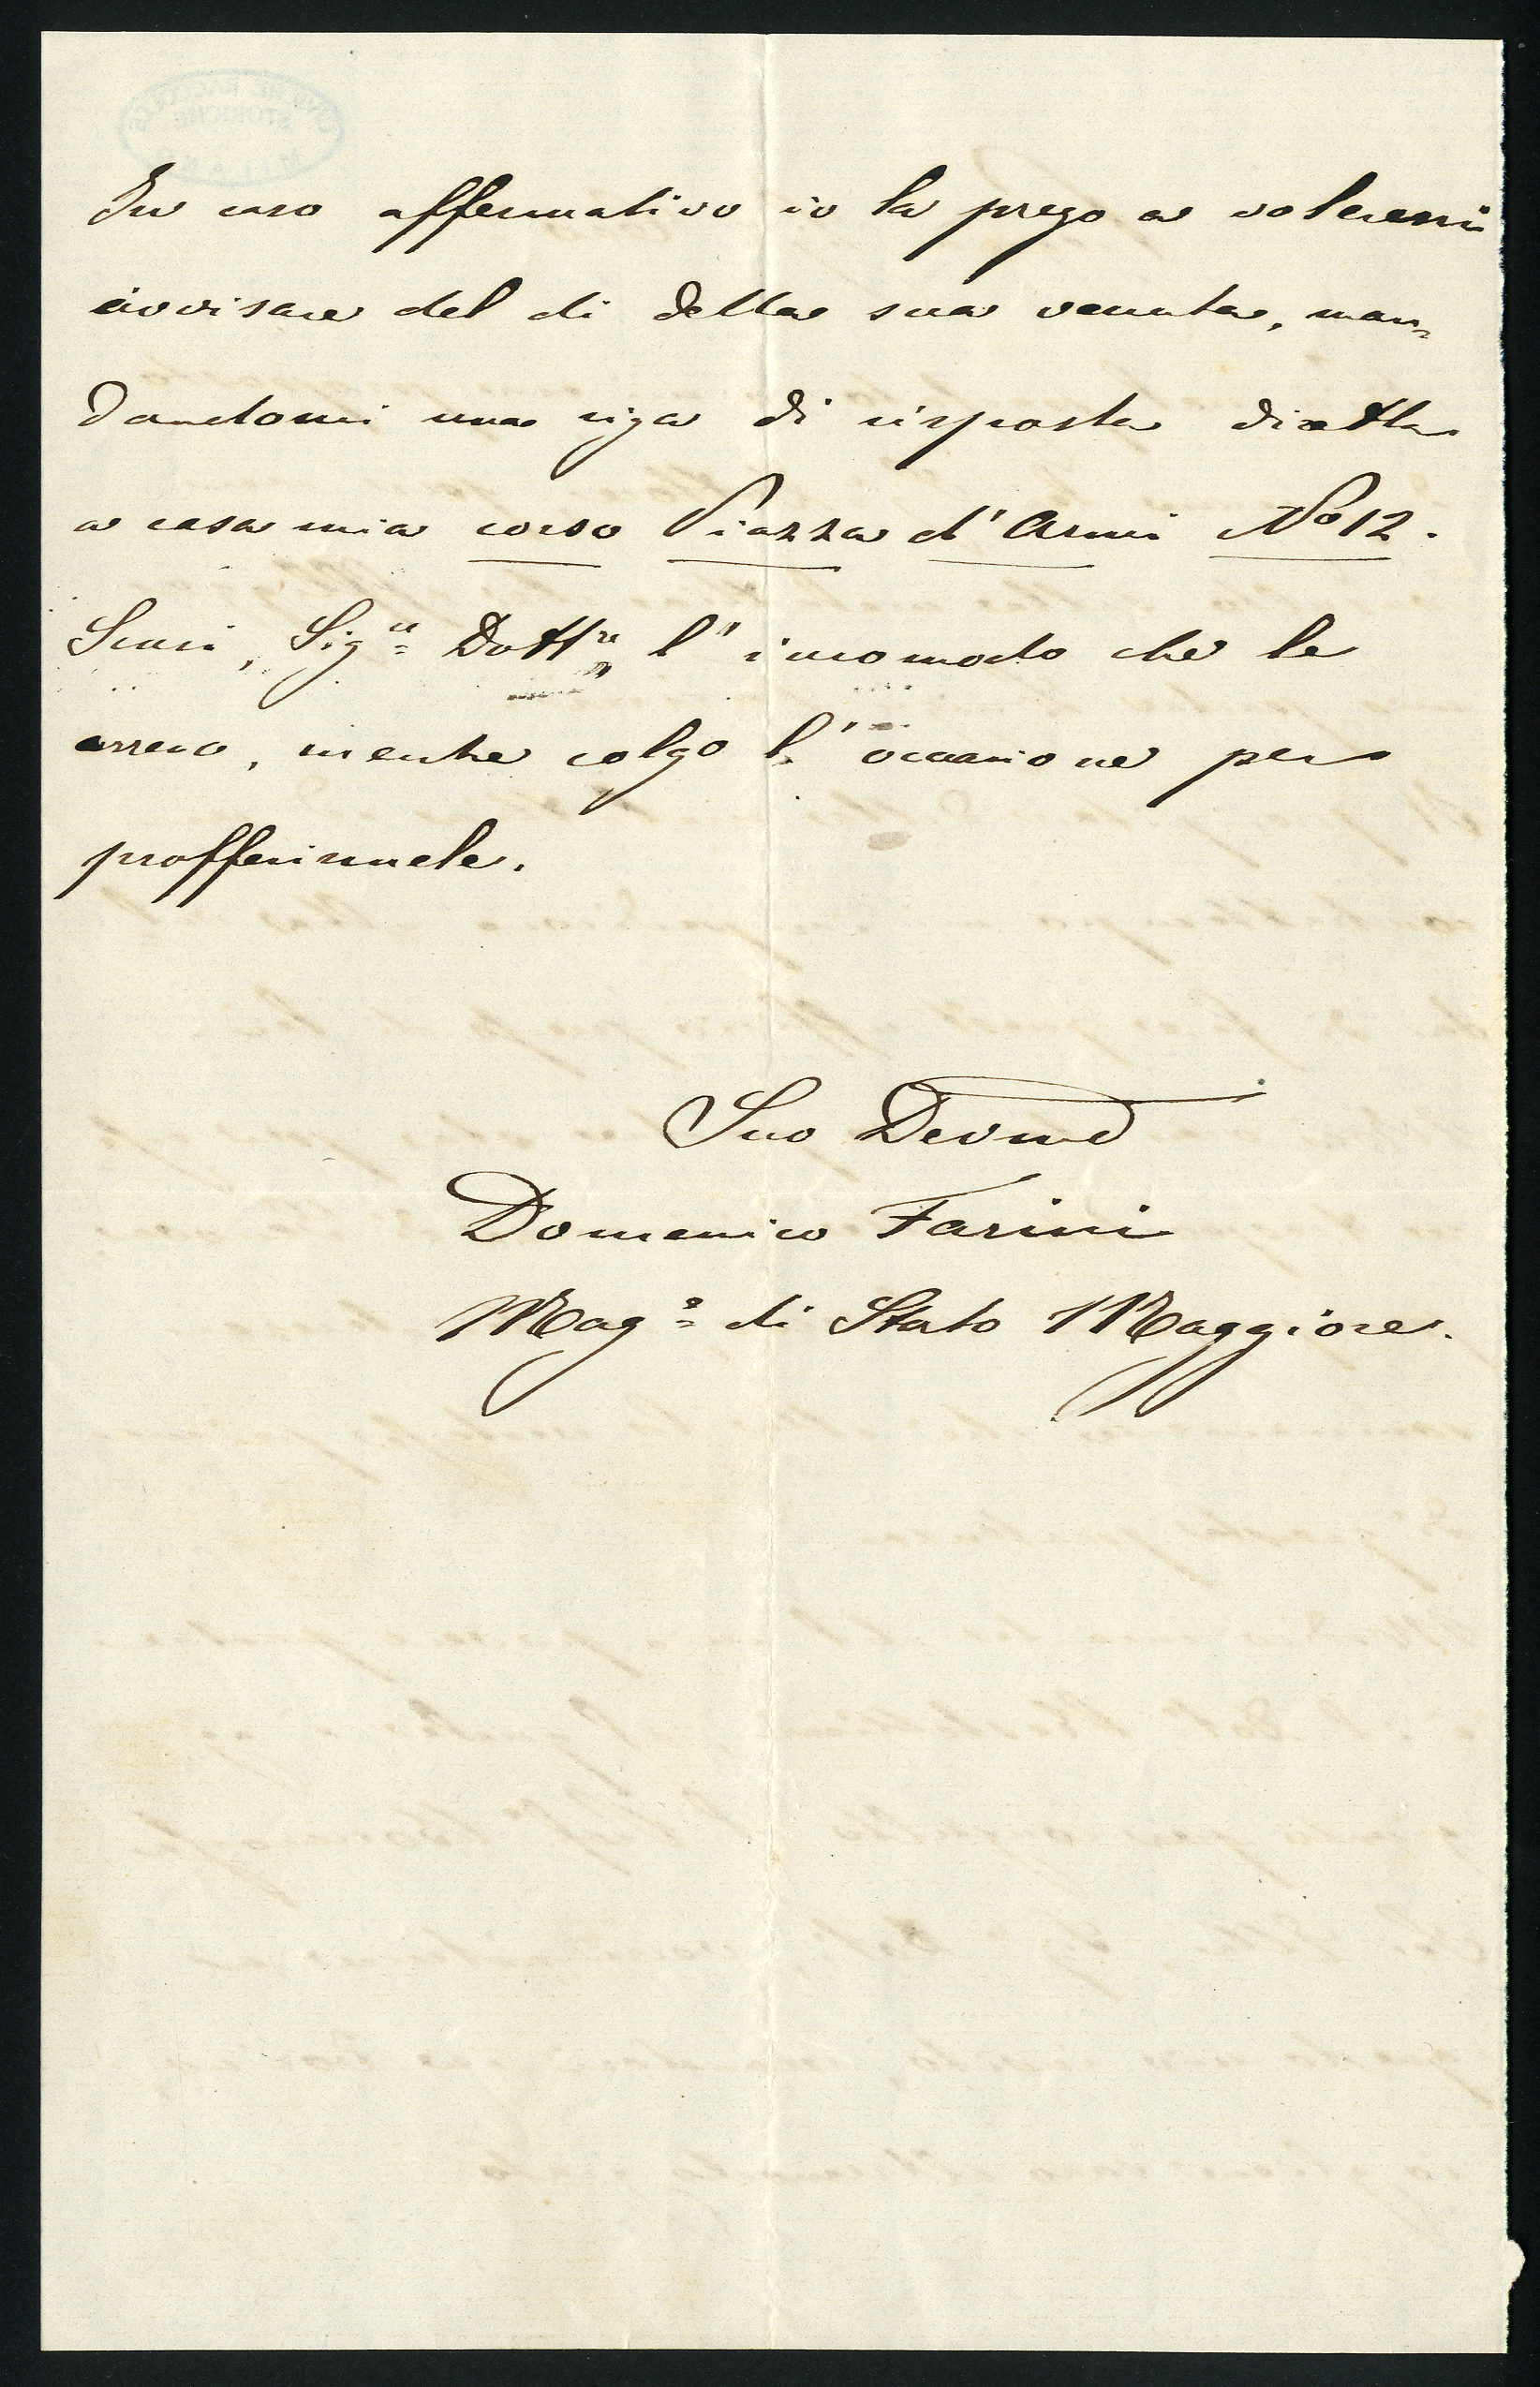 In caso affermativo io la prego a volermi
avvisare del di della sua venuta, man=
dandomi una riga di risposta diretta
a casa mia corso Piazza d'Armi No 12.
Scusi, Sigre Dottre l'incomodo che le
arreco, mentre colgo l'occasione per
profferirmele.
Suo Devmo
Domenico Farini
Magre di Stato Maggiore.